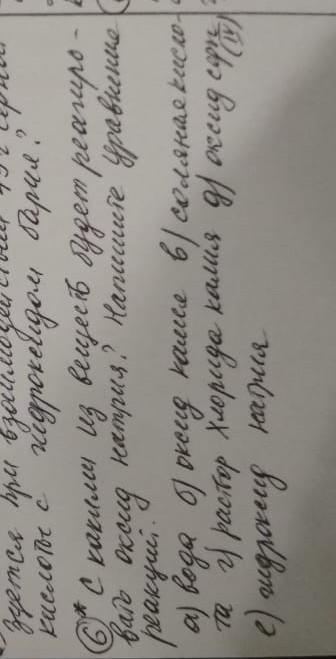 зуется при взаимодействии 49 г серной
кислоты с гидроксидом бария?
6* С какими из веществ будет реагиро-
вать оксид натрия? Напишите уравнение
реакций.
а) вода б) оксид калия в) соляная кисло-
та г) раствор хлорида калия д) оксид серы (IV)
е) гидроксид натрия